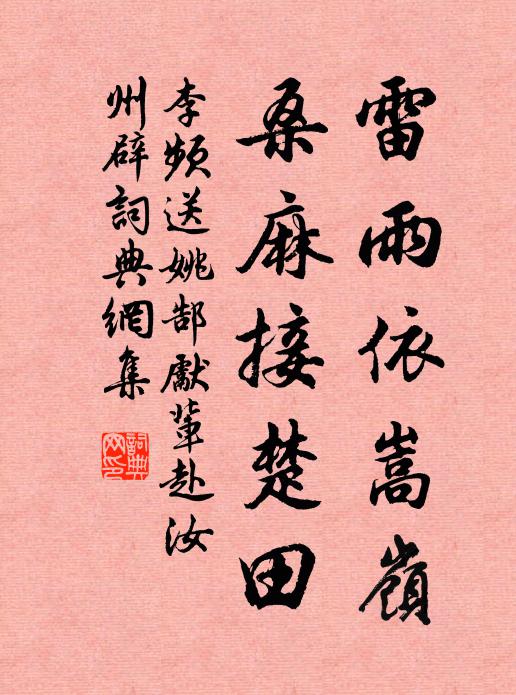 雷雨依嵩嶺
桑麻接楚田
李頻送姚郜獻輩赴汝
州辟詞典網集
詞典網印